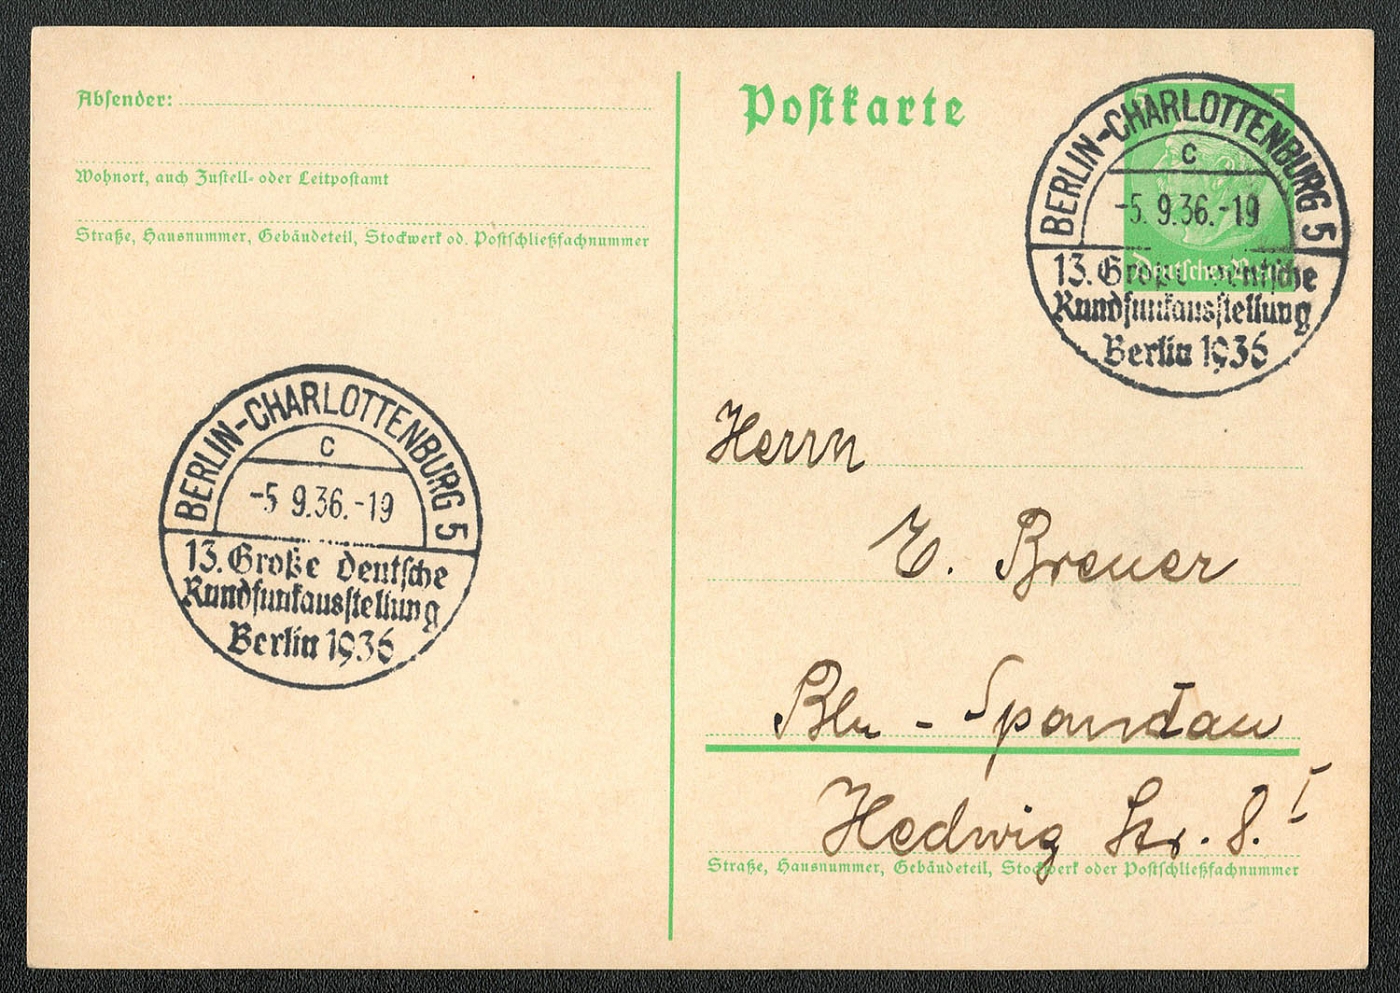 Absender:
Wohnort, auch Zustell- oder Leitpostamt
Straße, Hausnummer, Gebäudeteil, Stockwerk od. Postschließfachnummer
BERLIN-CHARLOTTENBURG 5
c
-5 9.36.-19
13. Große Deutsche
Rundfunkausstellung
Berlin 1936
Postkarte
5 5
Deutsches Reich
BERLIN-CHARLOTTENBURG 5
c
-5.9.36.-19
13. Große Deutsche
Rundfunkausstellung
Berlin 1936
Herrn
E. Breuer
Bln - Spandau
Hedwig Str. 8. I
Straße, Hausnummer, Gebäudeteil, Stockwerk oder Postschließfachnummer